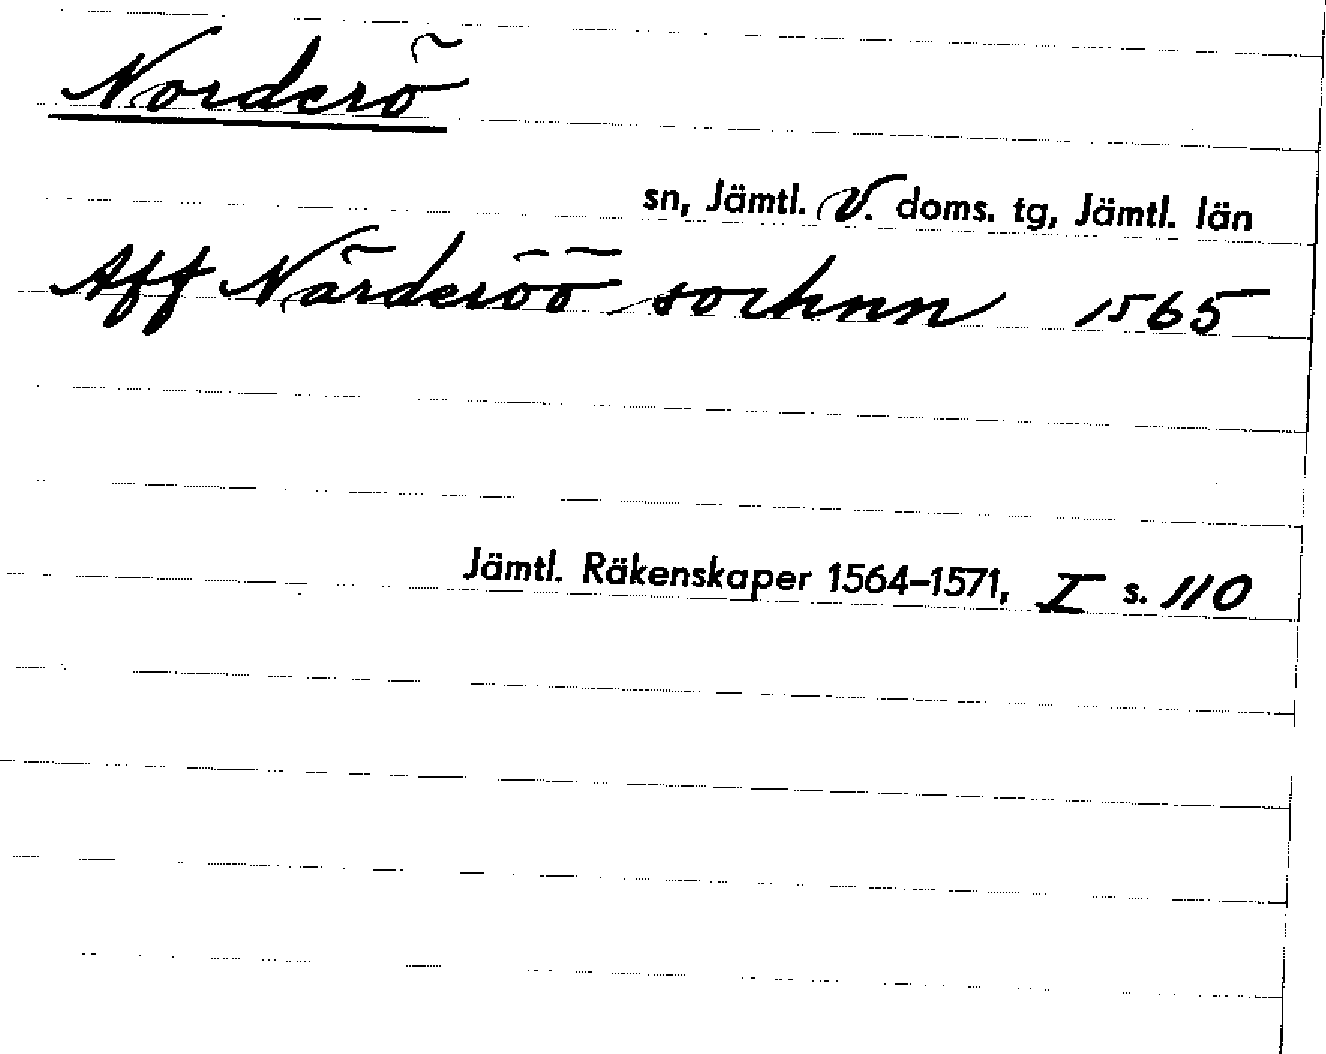 Norderö
sn, Jämtl. V. doms. tg, Jämtl. län
Aff Närderöö sochnn 1565
Jämtl. Räkenskaper 1564–1571, I s. 110